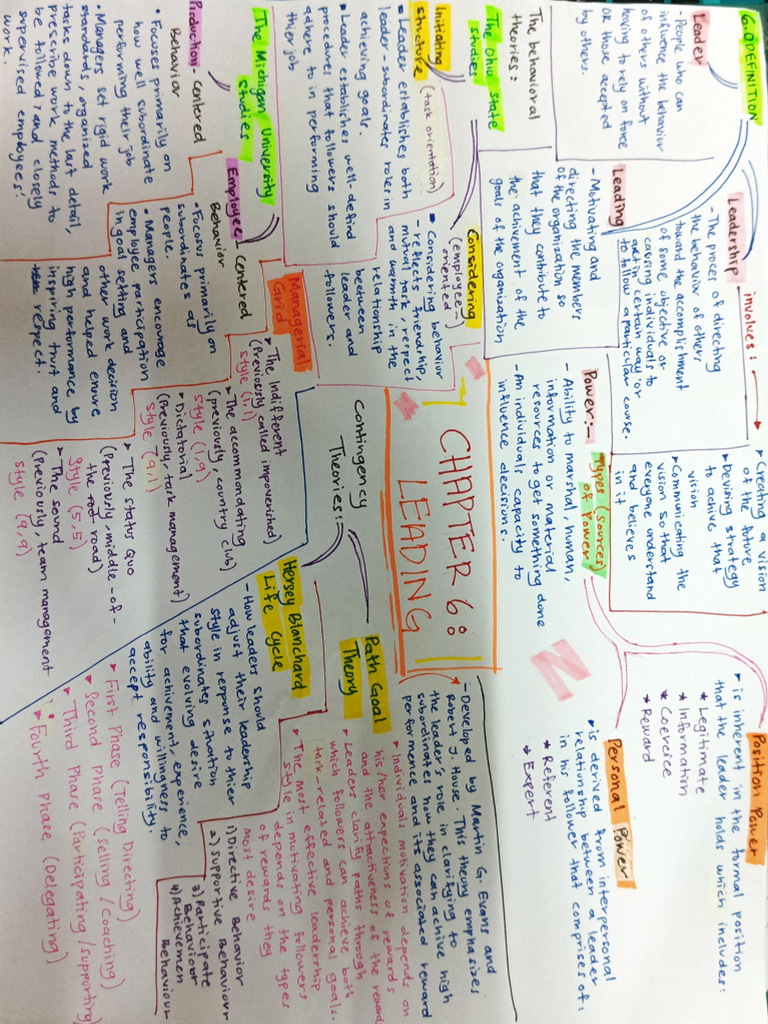 6.0 DEFINITION
Leader
- People who can
influence the behavior
of others without
having to rely on force
or those accepted
by others.
Leadership
- The proces of directing
the behavior of others
toward the accomplishment
of some objective or
causing individuals to
act in certain way or
to follow a particular course.
involves:
➤ Creating a vision
of the future
➤ Devising strategy
to achieve that
vision
➤ Communicating the
vision so that
everyone understand
and believes
in it
Leading
- Motivating and
directing the members
of the organisation so
that they contribute to
the achievement of the
goals of the organisation
Power:-
- Ability to marshal, human,
information or material
resources to get something done
- An individuals capacity to
influence decisions.
Types (sources)
of Power:
Position Power
➤ is inherent in the formal position
that the leader holds which includes:
* Legitimate
* Information
* Coercice
* Reward
Personal Power
➤ is derived from interpersonal
relationship between a leader
in his follower that comprises of:
* Referent
* Expert
The behavioral
theories:
The Ohio State
studies
Initiating
structure (task orientation)
▪ Leader establishes both
leader-subordinates roles in
achieving goals.
▪ Leader establishes well-defind
procedures that followers should
adhere to in performing
their job
Considering
(employee-
oriented)
▪ Considering behavior
- reflects friendship,
mutual task, respect
and warmth in the
relationship
between
leader and
followers.
The Michigan University
studies
Production-centered
Behavior
• Focuses primarily on
how well subordinate
performing their job
• Managers set rigid work
standards, organized
tasks down to the last detail,
prescribe work methods to
be followed, and closely
supervised employees'
work.
Employee-centered
Behavior
- Focusus primarily on
subordinates as
people.
• Managers encourage
employee participation
in goal setting and
other work decision
and helped ensure
high performance by
inspiring trust and
respect.
CHAPTER 6:
LEADING
Managerial
Grid
➤ The Indifferent
(Previously called impoverished)
style (1,1)
➤ The accommodating
(previously, country club)
style (1,9)
➤ Dictatorial
(Previously, task management)
style (9,1)
➤ The status Quo
(Previously, middle-of-
the road)
Style (5,5)
➤ The sound
(Previously, team management
style (9,9)
Contingency
Theories:-
Path Goal
Theory
- Developed by Martin G. Evans and
Robert J. House. This theory emphasizes
the leader's role in clarifying to
subordinates how they can achive high
performence and its associated reward
➤ Individuals motivation depends on
his/her expections of rewards
and the attractiveness of the reward
➤ Leaders clarify paths through
which followers can achieve both
task-related and personal goals.
➤ The most effective leadership
style in motivating followers
depends on the types
of rewards they
most desire
1) Directive Behavior
2) Supportive Behaviour
3) Participate
Behaviour
4) Achievemen
Behaviour
Hersey Blanchard
Life Cycle
- How leaders should
adjust their leadership
style in response to thier
subordinates situation
that evolving desire
for achivement, experience,
ability and willingness to
accept responsibility.
➤ First Phase (Telling Directing)
➤ Second Phase (Selling/Coaching)
➤ Third Phase (Participating/supporting)
➤ Fourth phase (Delegating)